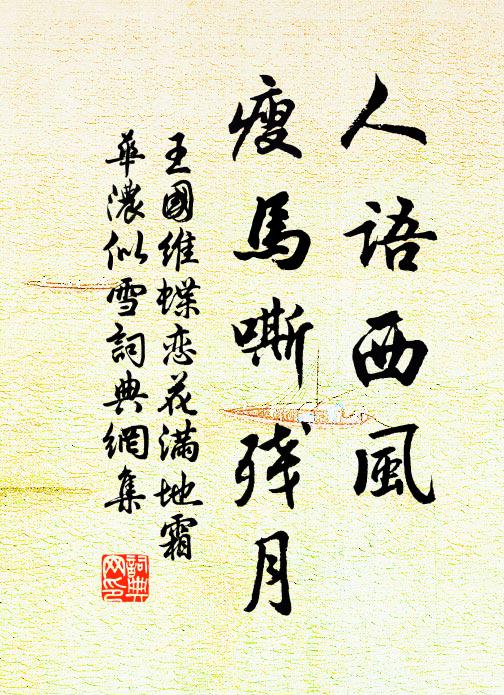 人語西風
瘦馬嘶残月
王國維蝶恋花滿地霜
華濃似雪詞典網集
詞典
网印